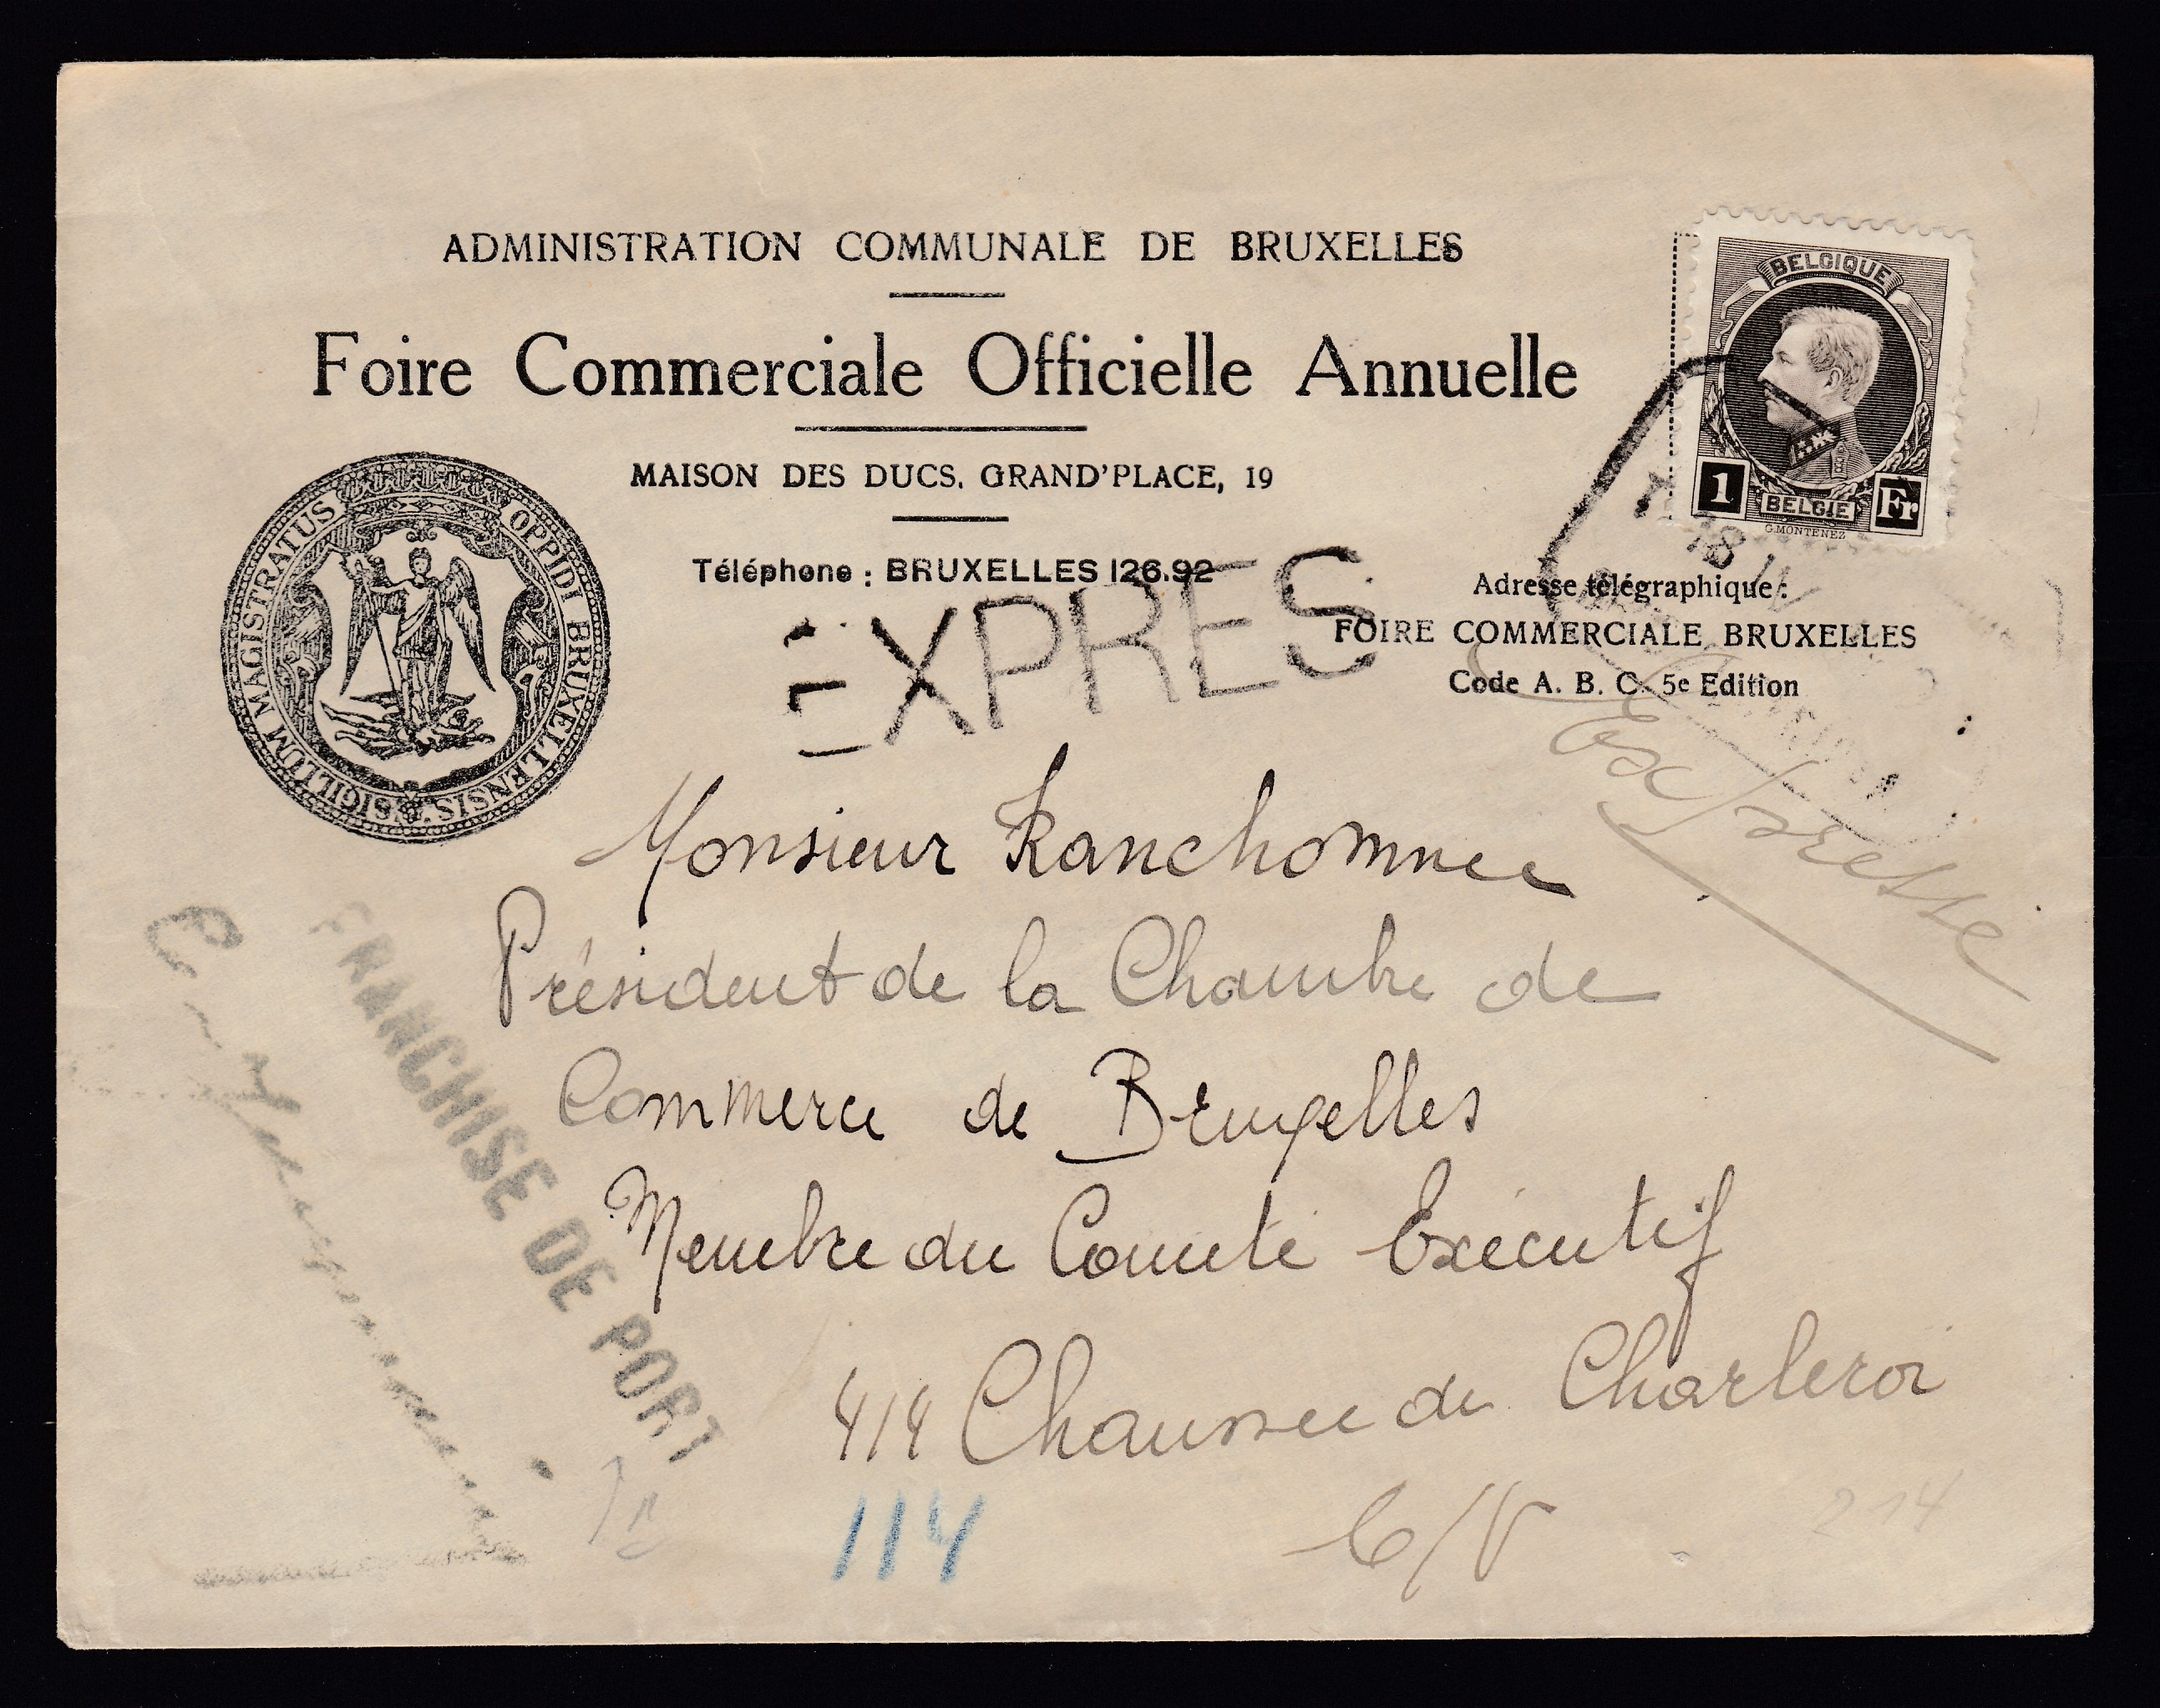 ADMINISTRATION COMMUNALE DE BRUXELLES
Foire Commerciale Officielle Annuelle
MAISON DES DUCS, GRAND'PLACE, 19
Téléphone : BRUXELLES 126.92
SIGILLUM MAGISTRATUS OPPIDI BRUXELLENSIS
BELGIQUE
1 BELGIE Fr
G.MONTENEZ
18 IV
Adresse télégraphique :
FOIRE COMMERCIALE BRUXELLES
Code A. B. C. 5e Edition
EXPRES
Expresse
Monsieur
Président de la Chambre de
Commerce de Bruxelles
Membre du Comité Exécutif
414 Chaussée de Charleroi
E/V
FRANCHISE DE PORT
114
214